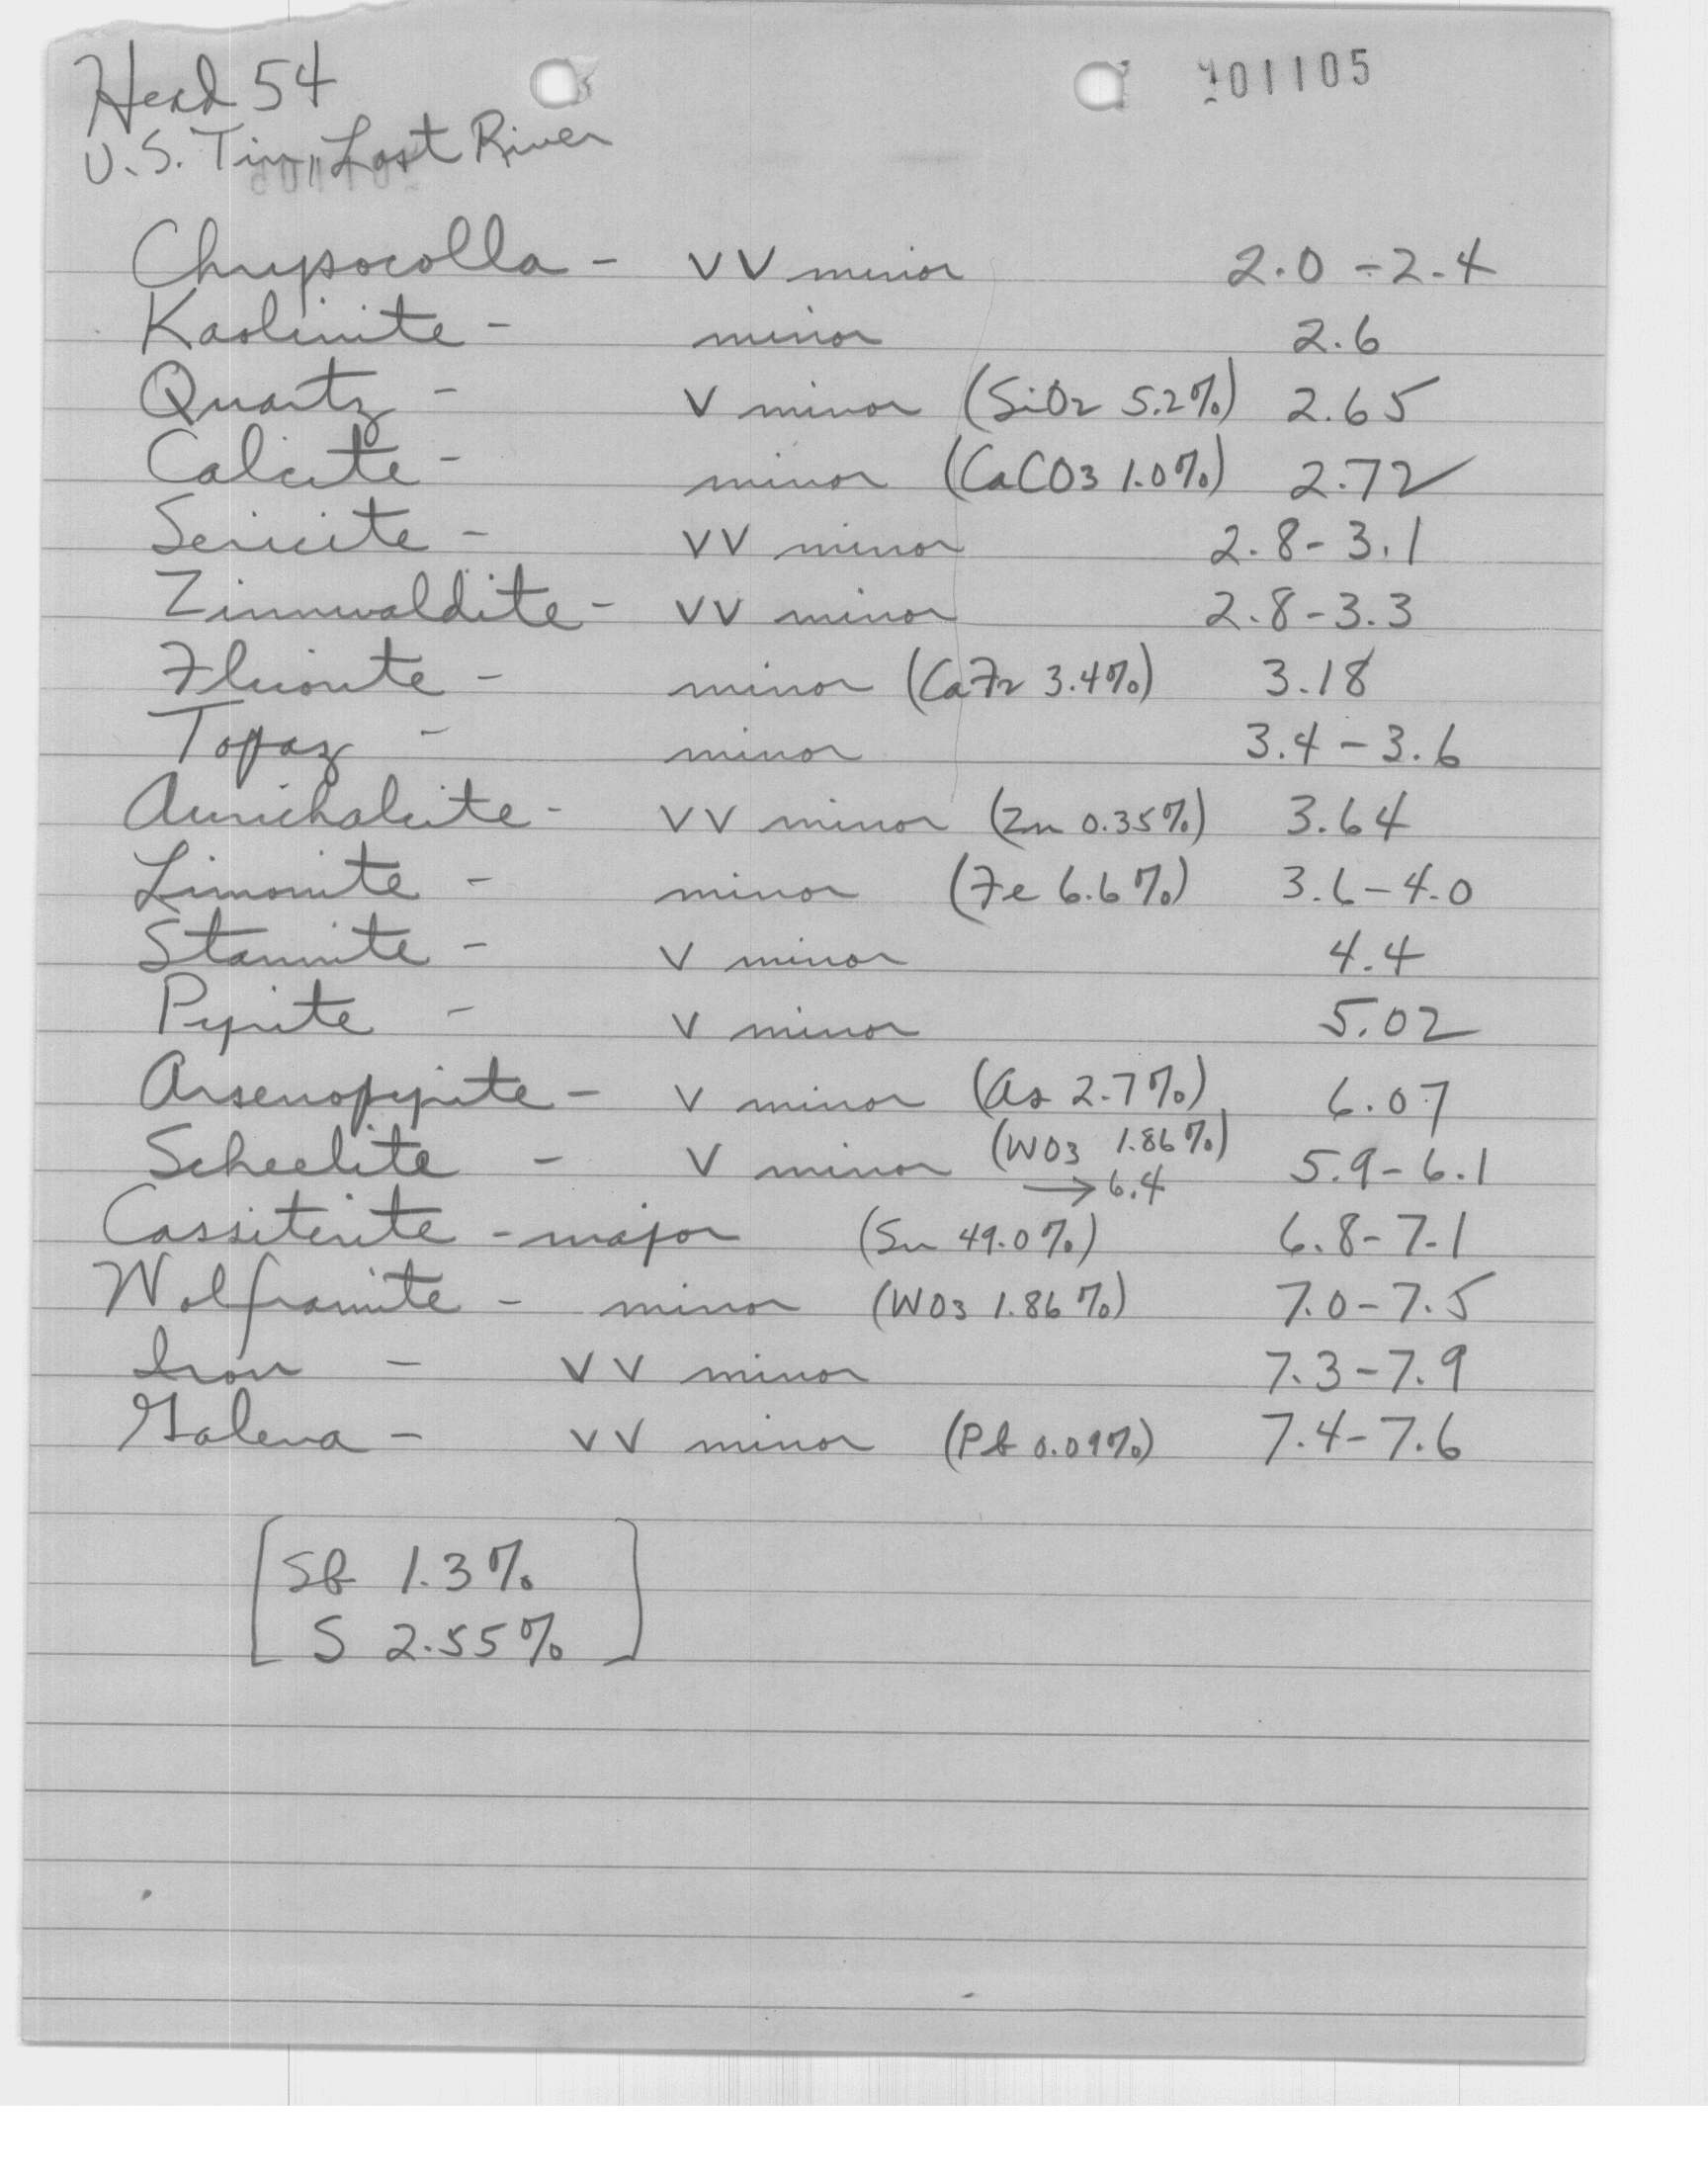 Head 54
401105
U.S. Tin, Lost River
Chrysocolla - VV minor 2.0-2.4
Kaolinite - minor 2.6
Quartz - V minor (SiO2 5.2%) 2.65
Calcite - minor (CaCO3 1.0%) 2.72
Sericite - VV minor 2.8-3.1
Zinnwaldite - VV minor 2.8-3.3
Fluorite - minor (CaF2 3.4%) 3.18
Topaz - minor 3.4-3.6
Aurichalcite - VV minor (Zn 0.35%) 3.64
Limonite - minor (Fe 6.6%) 3.6-4.0
Stannite - V minor 4.4
Pyrite - V minor 5.02
Arsenopyrite - V minor (As 2.7%) 6.07
Scheelite - V minor (WO3 1.86%) 5.9-6.1
→6.4
Cassiterite - major (Sn 49.0%) 6.8-7.1
Wolframite - minor (WO3 1.86%) 7.0-7.5
Iron - VV minor 7.3-7.9
Galena - VV minor (Pb 0.09%) 7.4-7.6
[Sb 1.3%
S 2.55%]